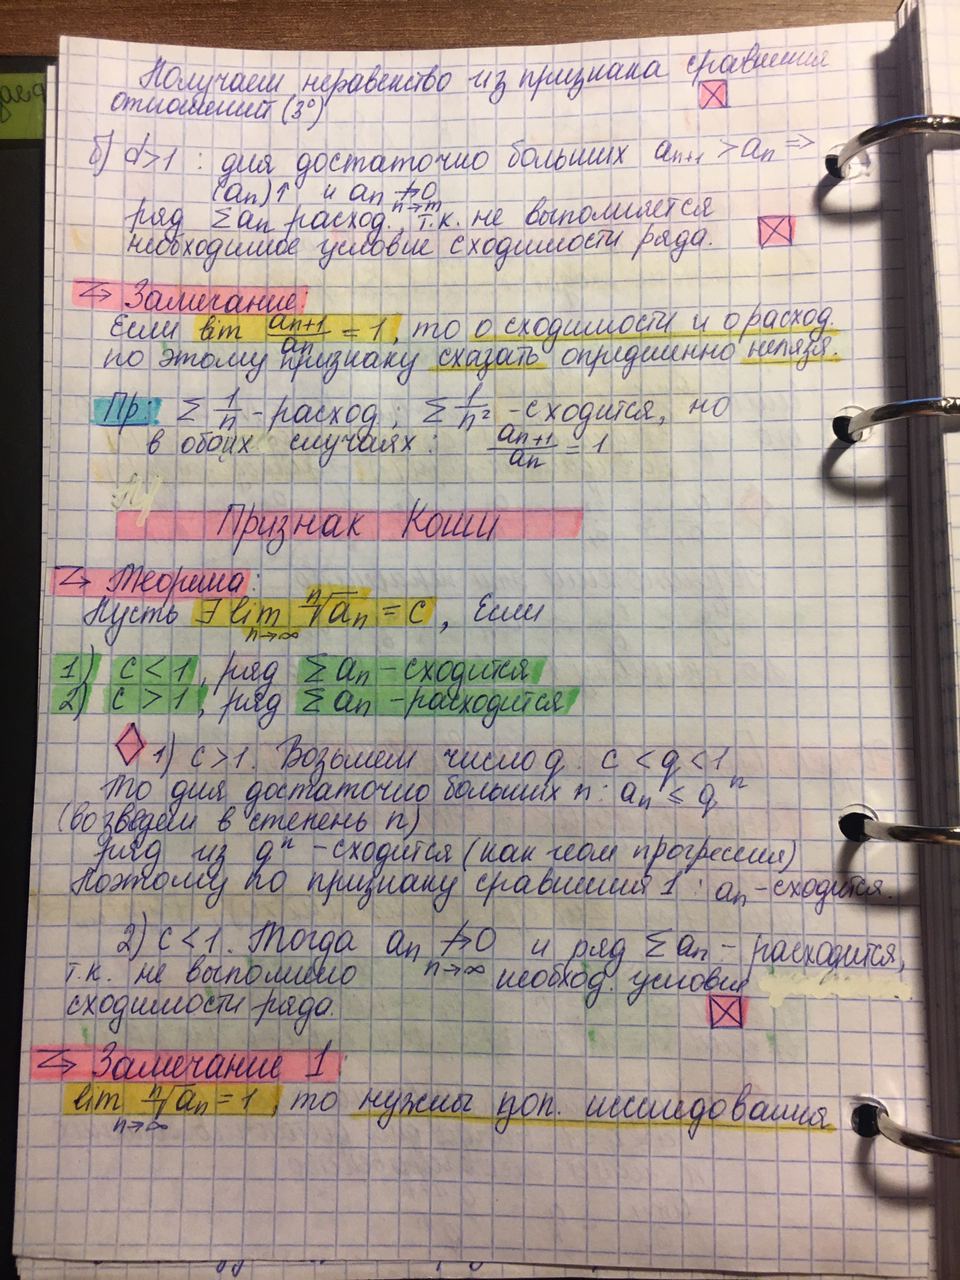 Получаем неравенство из признака сравнения
отношений (3°)
б) d>1 : для достаточно больших aₙ₊₁ > aₙ =>
(aₙ)↑ и aₙ ↛ 0
n→∞
ряд Σaₙ расход., т.к. не выполняется
необходимое условие сходимости ряда.
Замечание:
Если lim aₙ₊₁/aₙ = 1, то о сходимости и о расход.
по этому признаку сказать определенно нельзя.
Пр: Σ 1/n - расход; Σ 1/n² - сходится, но
в обоих случаях: aₙ₊₁/aₙ = 1
Признак Коши
Теорема:
Пусть ∃ lim ⁿ√aₙ = c, Если
n→∞
1) c < 1, ряд Σaₙ - сходится
2) c > 1, ряд Σaₙ - расходится
1) c>1. Возьмем число q. c < q < 1
то для достаточно больших n: aₙ ≤ qⁿ
(возведем в степень n)
ряд из qⁿ - сходится (как геом прогрессия)
Поэтому по признаку сравнения 1: aₙ - сходится.
2) c < 1. Тогда aₙ ↛ 0 и ряд Σaₙ - расходится,
n→∞
т.к. не выполнено необход. условие
сходимости ряда.
Замечание 1
lim ⁿ√aₙ = 1, то нужны доп. исследования
n→∞